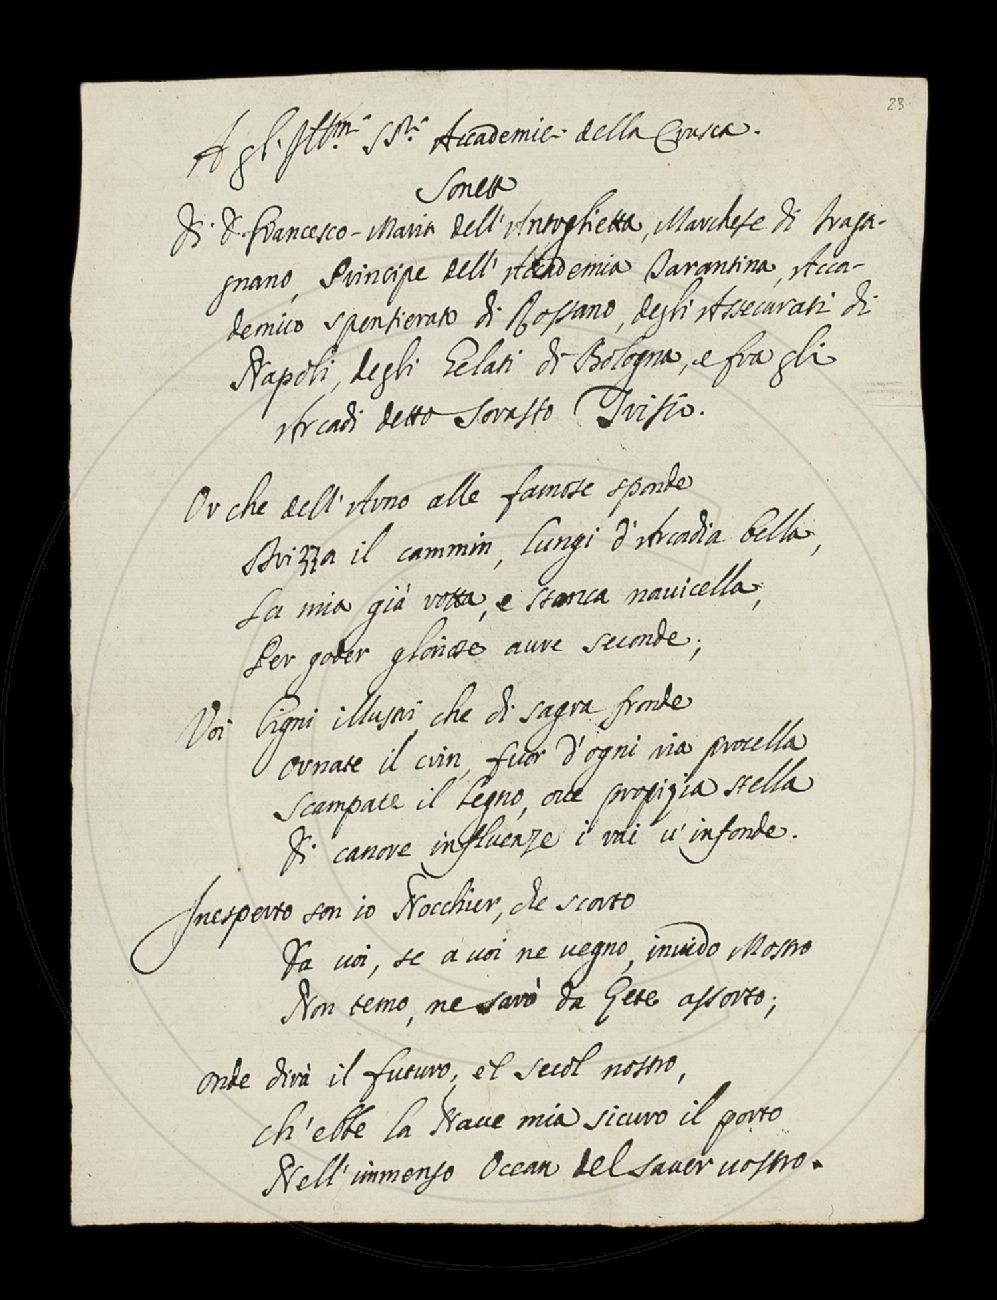 23
Agl' Ill.mi SS.ri Accademici della Crusca.
Sonetto
Di D. Francesco-Maria dell'Antoglietta, Marchese di Fraga-
gnano, Principe dell'Accademia Tarantina, Acca-
demico spensierato di Rossano, degli Assecurati di
Napoli, degli Gelati di Bologna, e fra gli
Arcadi detto Sorasto Trisio.
Or che dell'Arno alle famose sponde
Drizza il cammin, lungi d'Arcadia bella,
La mia già rotta, e stanca nauicella,
Per goder gloriose aure seconde;
Voi Cigni illustri che di sagra fronde
Ornate il crin, fuor d'ogni ria procella
Scampate il Legno, oue propizia stella
Di canore influenze i rai u'infonde.
Inesperto son io Nocchier, che scorto
Da uoi, se a uoi ne uegno, inuido Mostro
Non temo, ne sarò da Gete assorto;
Onde dirà il futuro, e'l secol nostro,
Ch'ebbe la Naue mia sicuro il porto
Nell'immenso Ocean del sauer uostro.